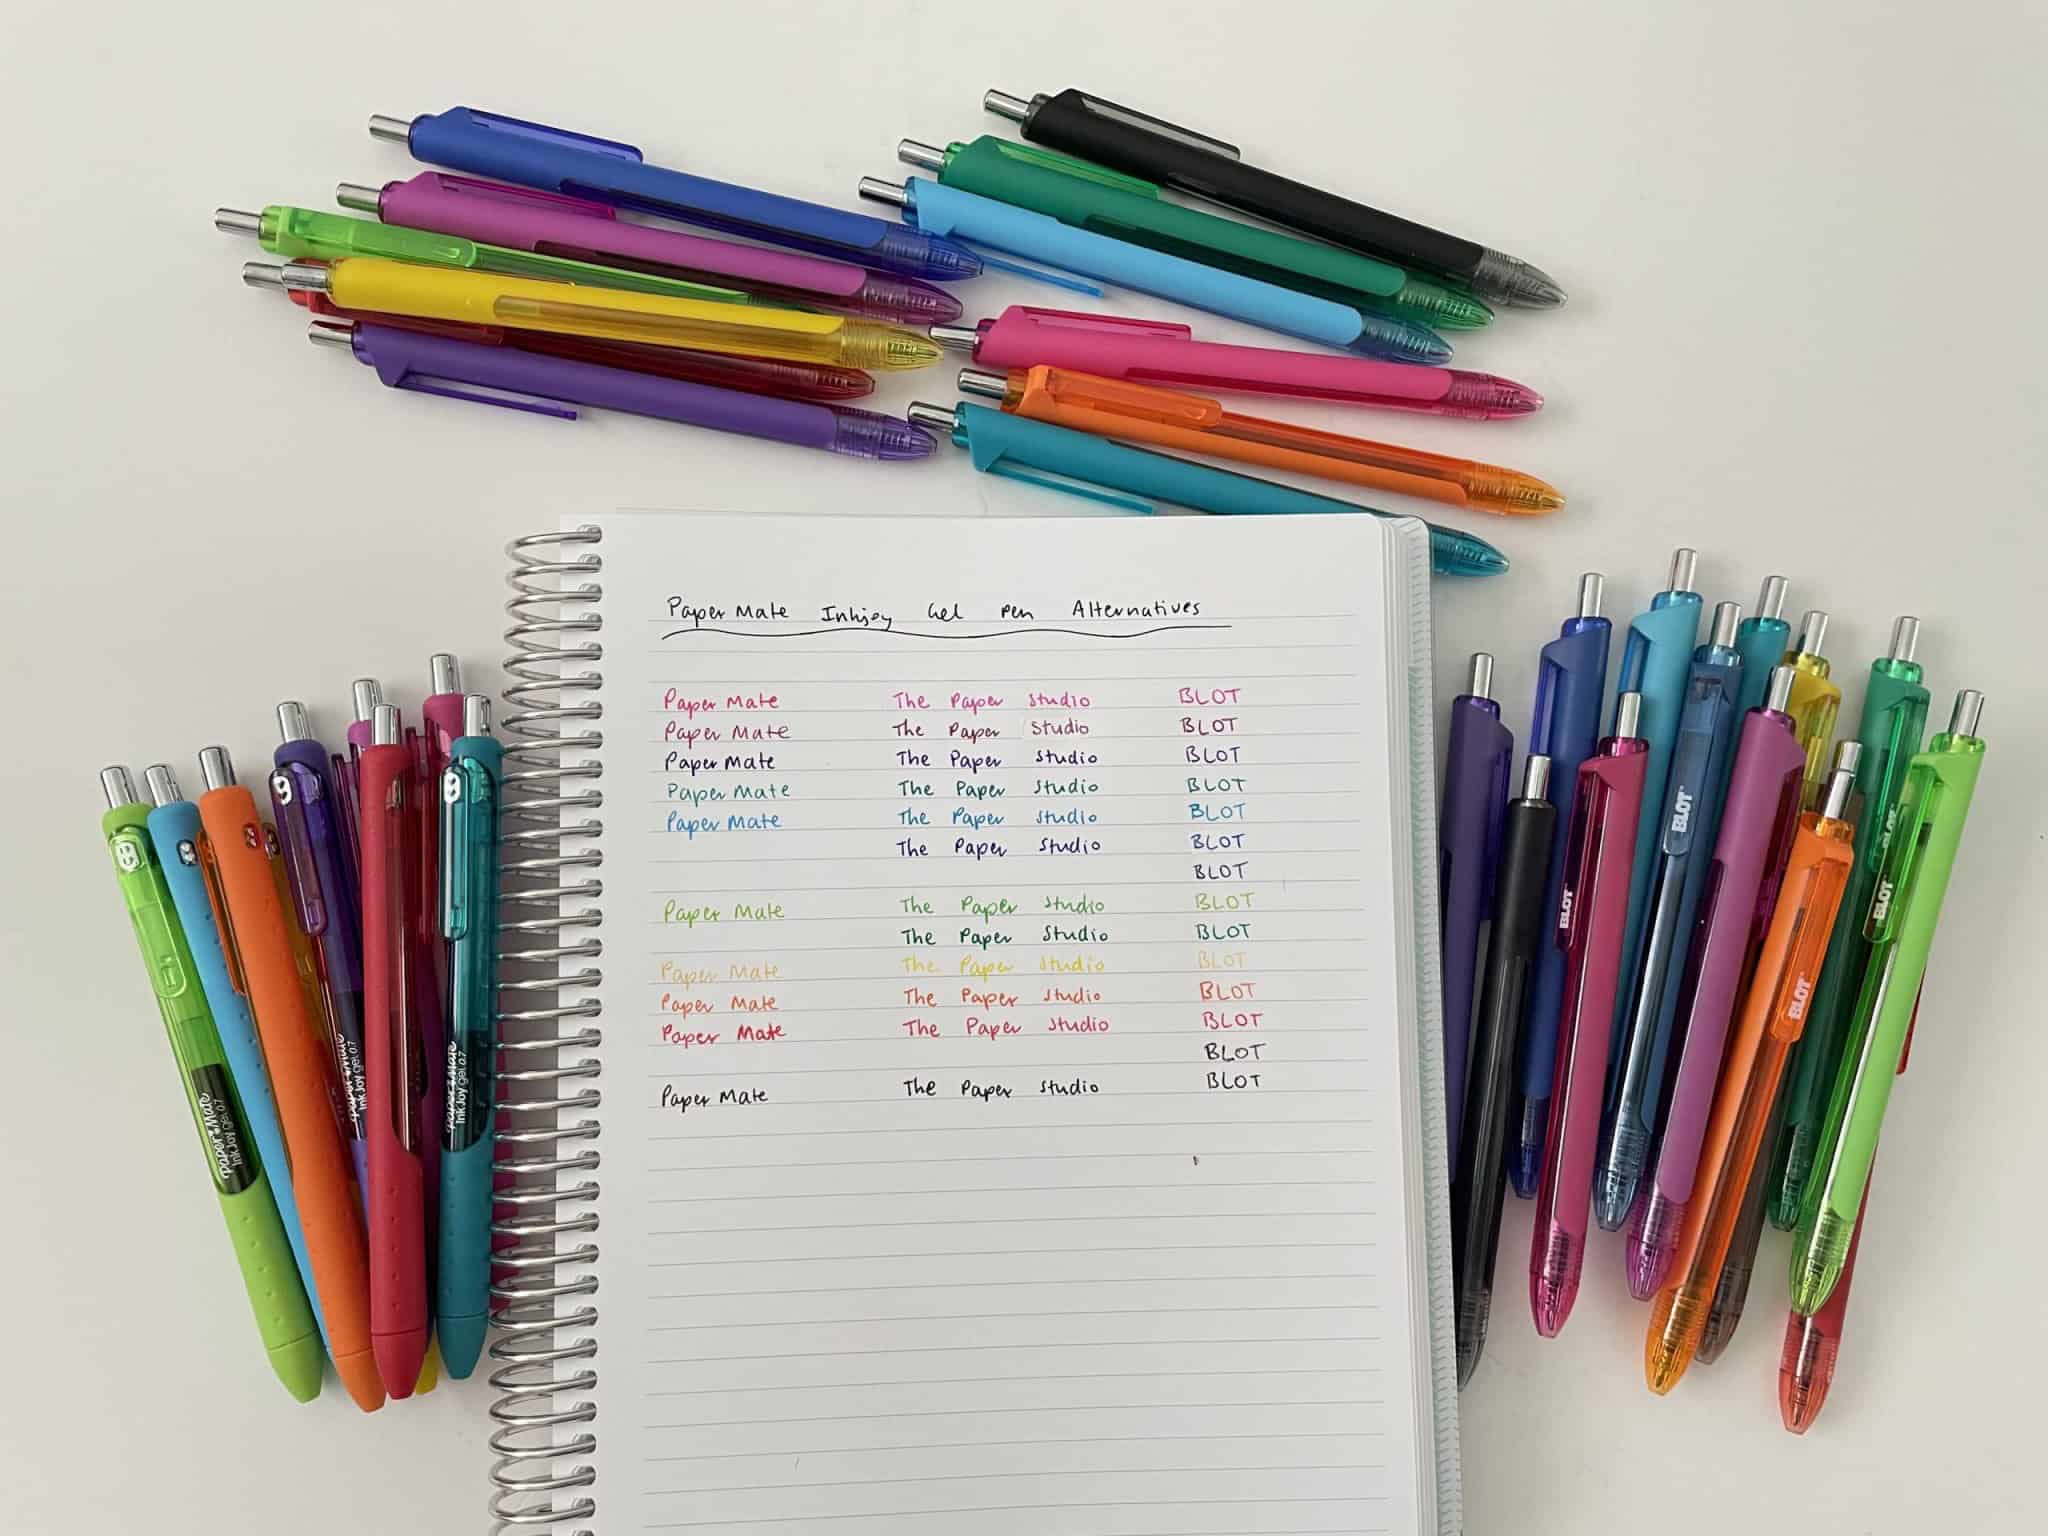 Paper Mate Inkjoy Gel Pen Alternatives
Paper Mate The Paper Studio BLOT
Paper Mate The Paper Studio BLOT
Paper Mate The Paper Studio BLOT
Paper Mate The Paper Studio BLOT
Paper Mate The Paper Studio BLOT
The Paper Studio BLOT
BLOT
Paper Mate The Paper Studio BLOT
The Paper Studio BLOT
Paper Mate The Paper Studio BLOT
Paper Mate The Paper Studio BLOT
Paper Mate The Paper Studio BLOT
BLOT
Paper Mate The Paper Studio BLOT
Paper Mate
InkJoy gel 0.7
Paper Mate
InkJoy gel 0.7
Paper Mate
InkJoy gel 0.7
BLOT
BLOT
BLOT
BLOT
BLOT